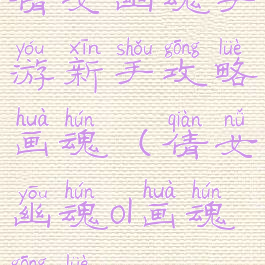 yóu xīn shǒu gōng lüè
游新手攻略
huà hún qiàn nǚ
画魂（倩女
yōu hún huà hún
幽魂ol画魂
gōng lüè